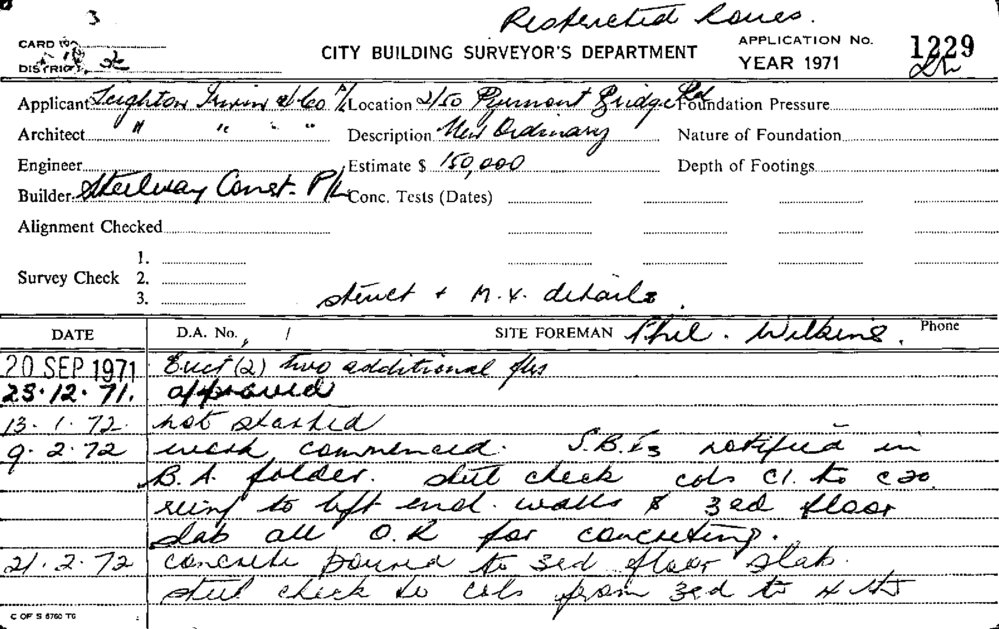 3
Restricted
CARD No.
DISTRICT 2
CITY BUILDING SURVEYOR'S DEPARTMENT
APPLICATION No. 1229
YEAR 1971
Applicant Leighton Irwin & Co P/L Location 2/50 Pyrmont Bridge Rd Foundation Pressure
Architect " " " " Description New Ordinary Nature of Foundation
Engineer Estimate $ 150,000 Depth of Footings
Builder Steelway Const. P/L Conc. Tests (Dates)
Alignment Checked
1.
Survey Check 2.
3.
struct + M.V. details.
DATE D.A. No. / SITE FOREMAN Phil. Wilkins. Phone
20 SEP 1971 Erect (2) two additional flrs
23.12.71. approved
13.1.72. not started
9.2.72 work commenced. S.B.Es notified in
B.A. folder. steel check cols C1. to C20.
reinf to lift end. walls & 3rd floor
slab all O.K for concreting.
21.2.72 concrete poured to 3rd floor slab.
steel check to cols from 3rd to 4th
C OF S 6760 TG